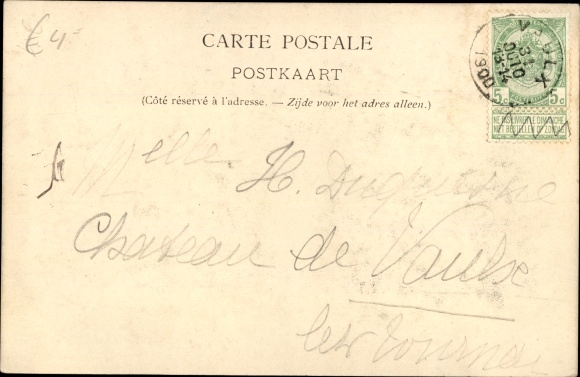 €4-
CARTE POSTALE
POSTKAART
(Côté réservé à l'adresse. — Zijde voor het adres alleen.)
VAULX
31
1900
5c 5c
NE PAS LIVRER LE DIMANCHE
NIET BESTELLEN OP ZONDAG
Melle H. Duquesne
Chateau de Vaulx
lez Tournai